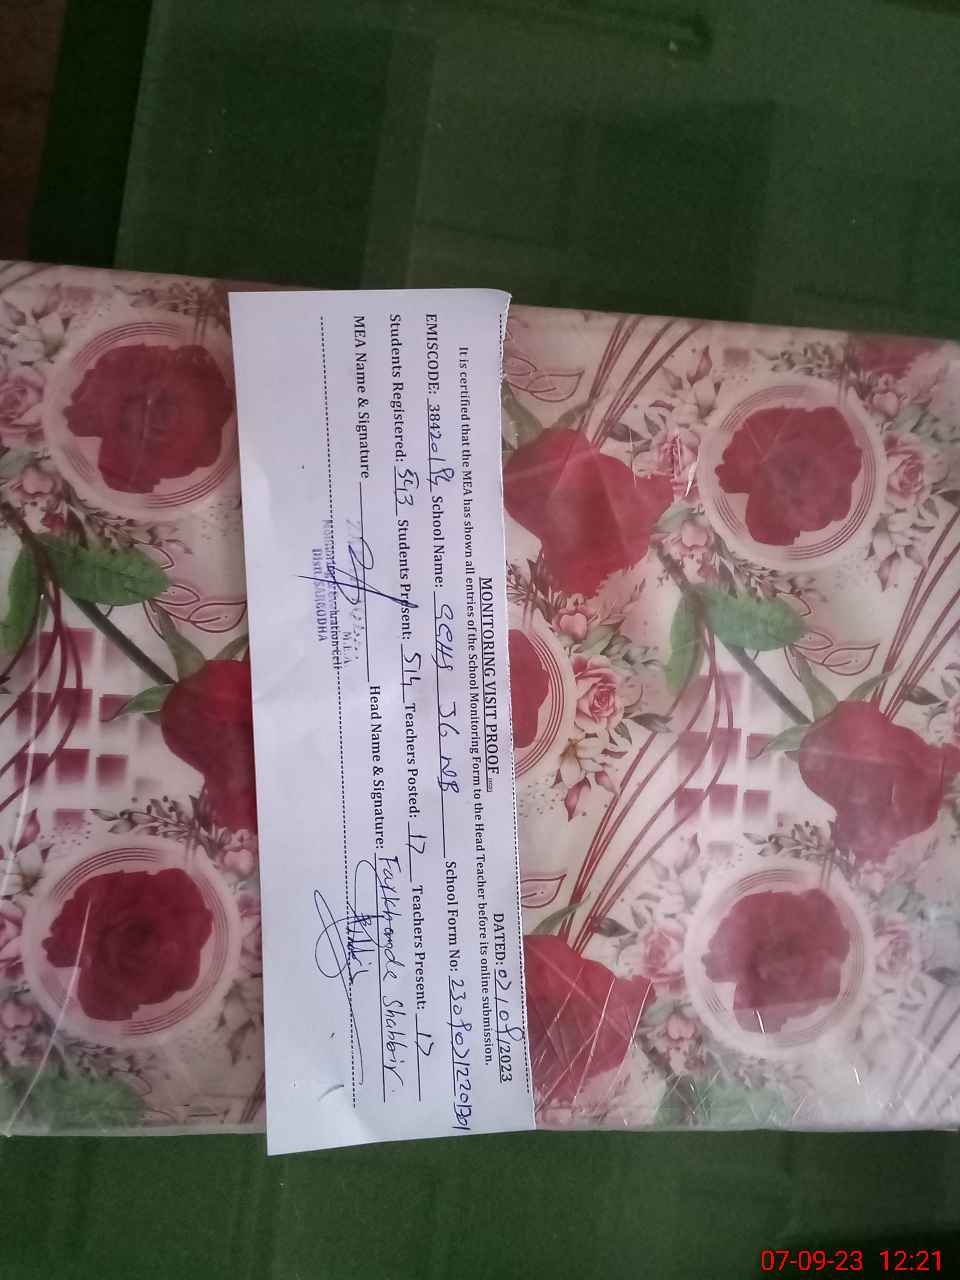 MONITORING VISIT PROOF
DATED: 07/09/2023
It is certified that the MEA has shown all entries of the School Monitoring Form to the Head Teacher before its online submission.
EMISCODE: 38420184 School Name: GGHS 36 NB School Form No:
Students Registered: 543 Students Present: 514 Teachers Posted: 17 Teachers Present: 17
MEA Name & Signature Head Name & Signature: Farkhanda Shabbir
M.E.A.
Monitoring & Evaluation Cell
Distt SARGODHA
07-09-23 12:21